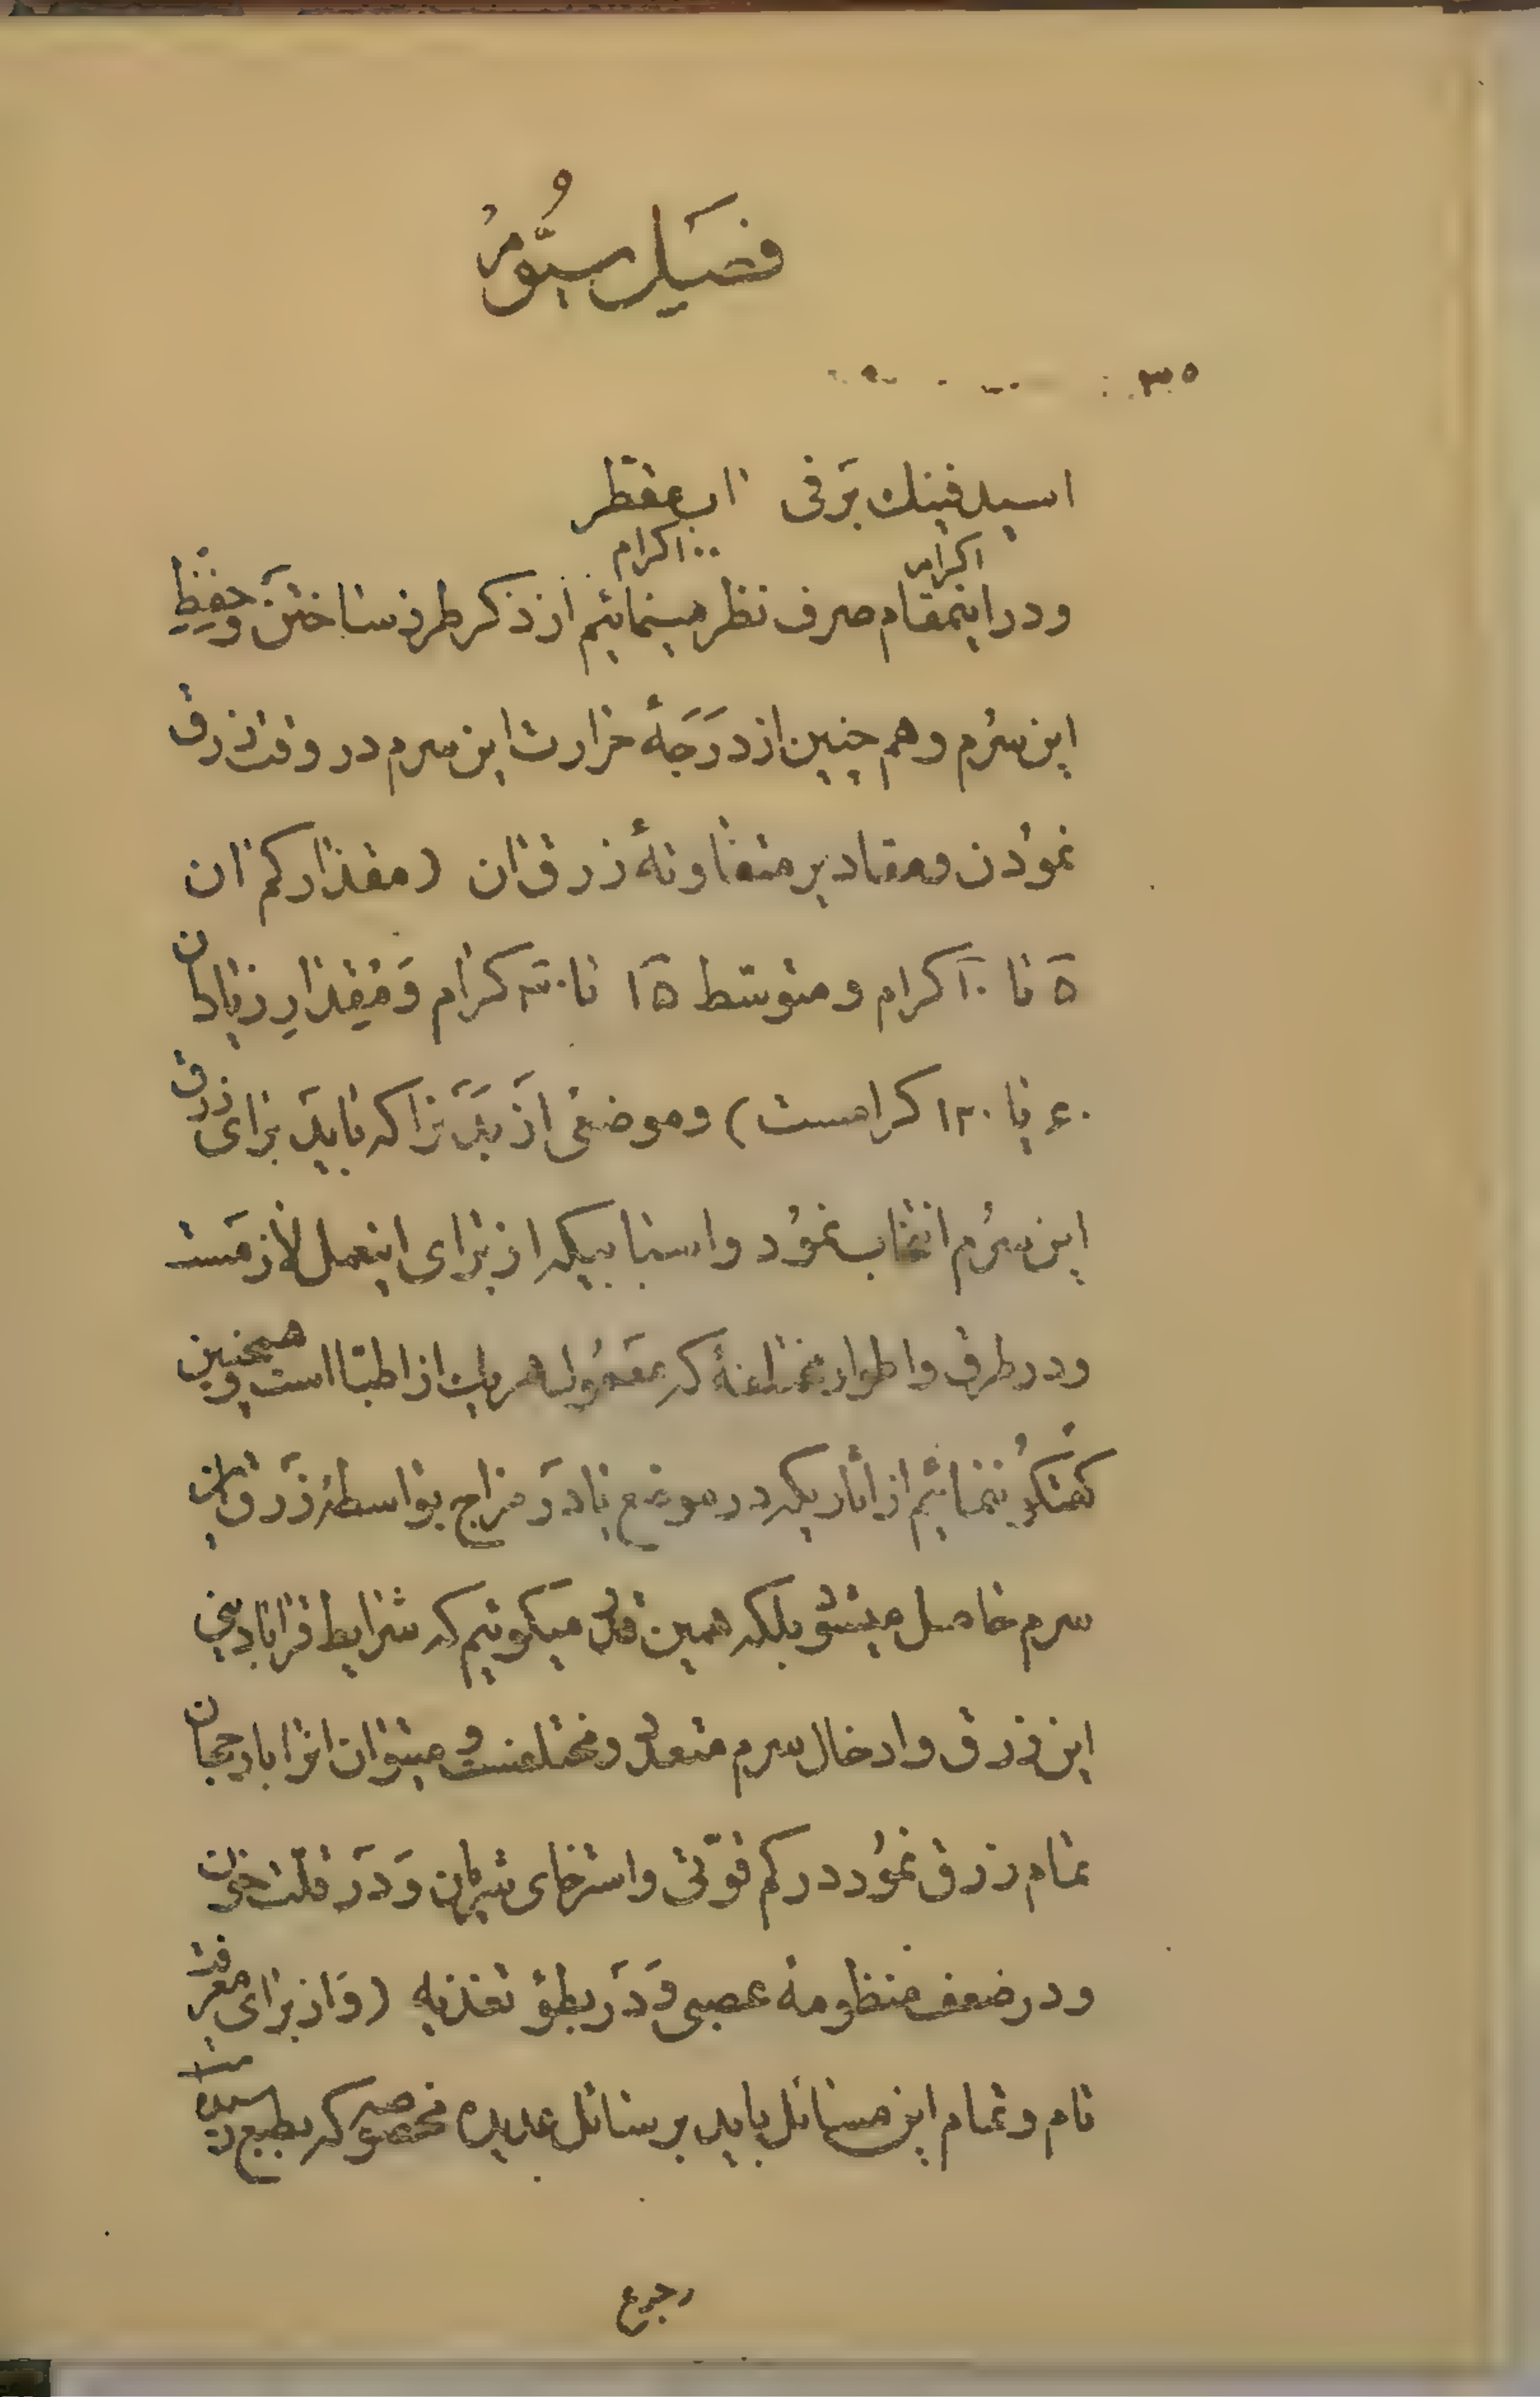 فصل سیّوم
۳۵
اسید فینک برفی اب مقطر
اکرام ۱۰۰کرام
و در اینمقام صرف نظر مینمائیم از ذکر طرز ساختن و حفظ
این سرم و هم چنین از درجهٔ حرارت این سرم در وقت زرق
نمودن و مقادیر متفاوتهٔ زرق ان (مقدار کم ان
۵ تا ۱۰ کرام و متوسّط ۱۵ تا کرام و مقدار زیاد ان
۶۰ تا ۱۲۰ کرامست) و موضعی از بدن را که باید برای زرق
این سرم انتخاب نمود و اسبابیکه از برای اینعمل لازمست
و در طرق و اطوار مختلفهٔ که معمول هر یک از اطبا است و همچنین
گفتگو ننمائیم از اثاریکه در موضع یا در مزاج بواسطهٔ زرق این
سرم حاصل میشود بلکه همین قدر میکوئیم که شرایط قرابادینی
این زرق و ادخال سرم متعدد و مختلفست و میتوان انرا با رجحان
تمام زرق نمود در کم قوّتی و استرخای شریان و در قلّت خون
و در ضعف منظومهٔ عصبی و در بطؤ تغذیه (و از برای معرفت
تام و تمام این مسائل باید برسائل عدیده مخصوصه که بطبع رسیده است
رجوع